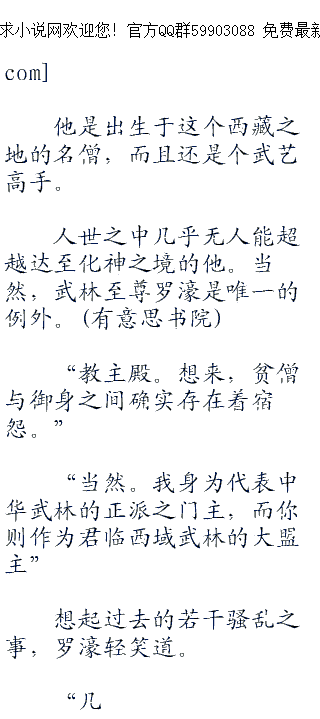 求小说网欢迎您! 官方QQ群59903088 免费最新
com]
他是出生于这个西藏之
地的名僧，而且还是个武艺
高手。
人世之中几乎无人能超
越达至化神之境的他。当
然，武林至尊罗濠是唯一的
例外。(有意思书院)
“教主殿。想来，贫僧
与御身之间确实存在着宿
怨。”
“当然。我身为代表中
华武林的正派之门主，而你
则作为君临西域武林的大盟
主”
想起过去的若干骚乱之
事，罗濠轻笑道。
“几